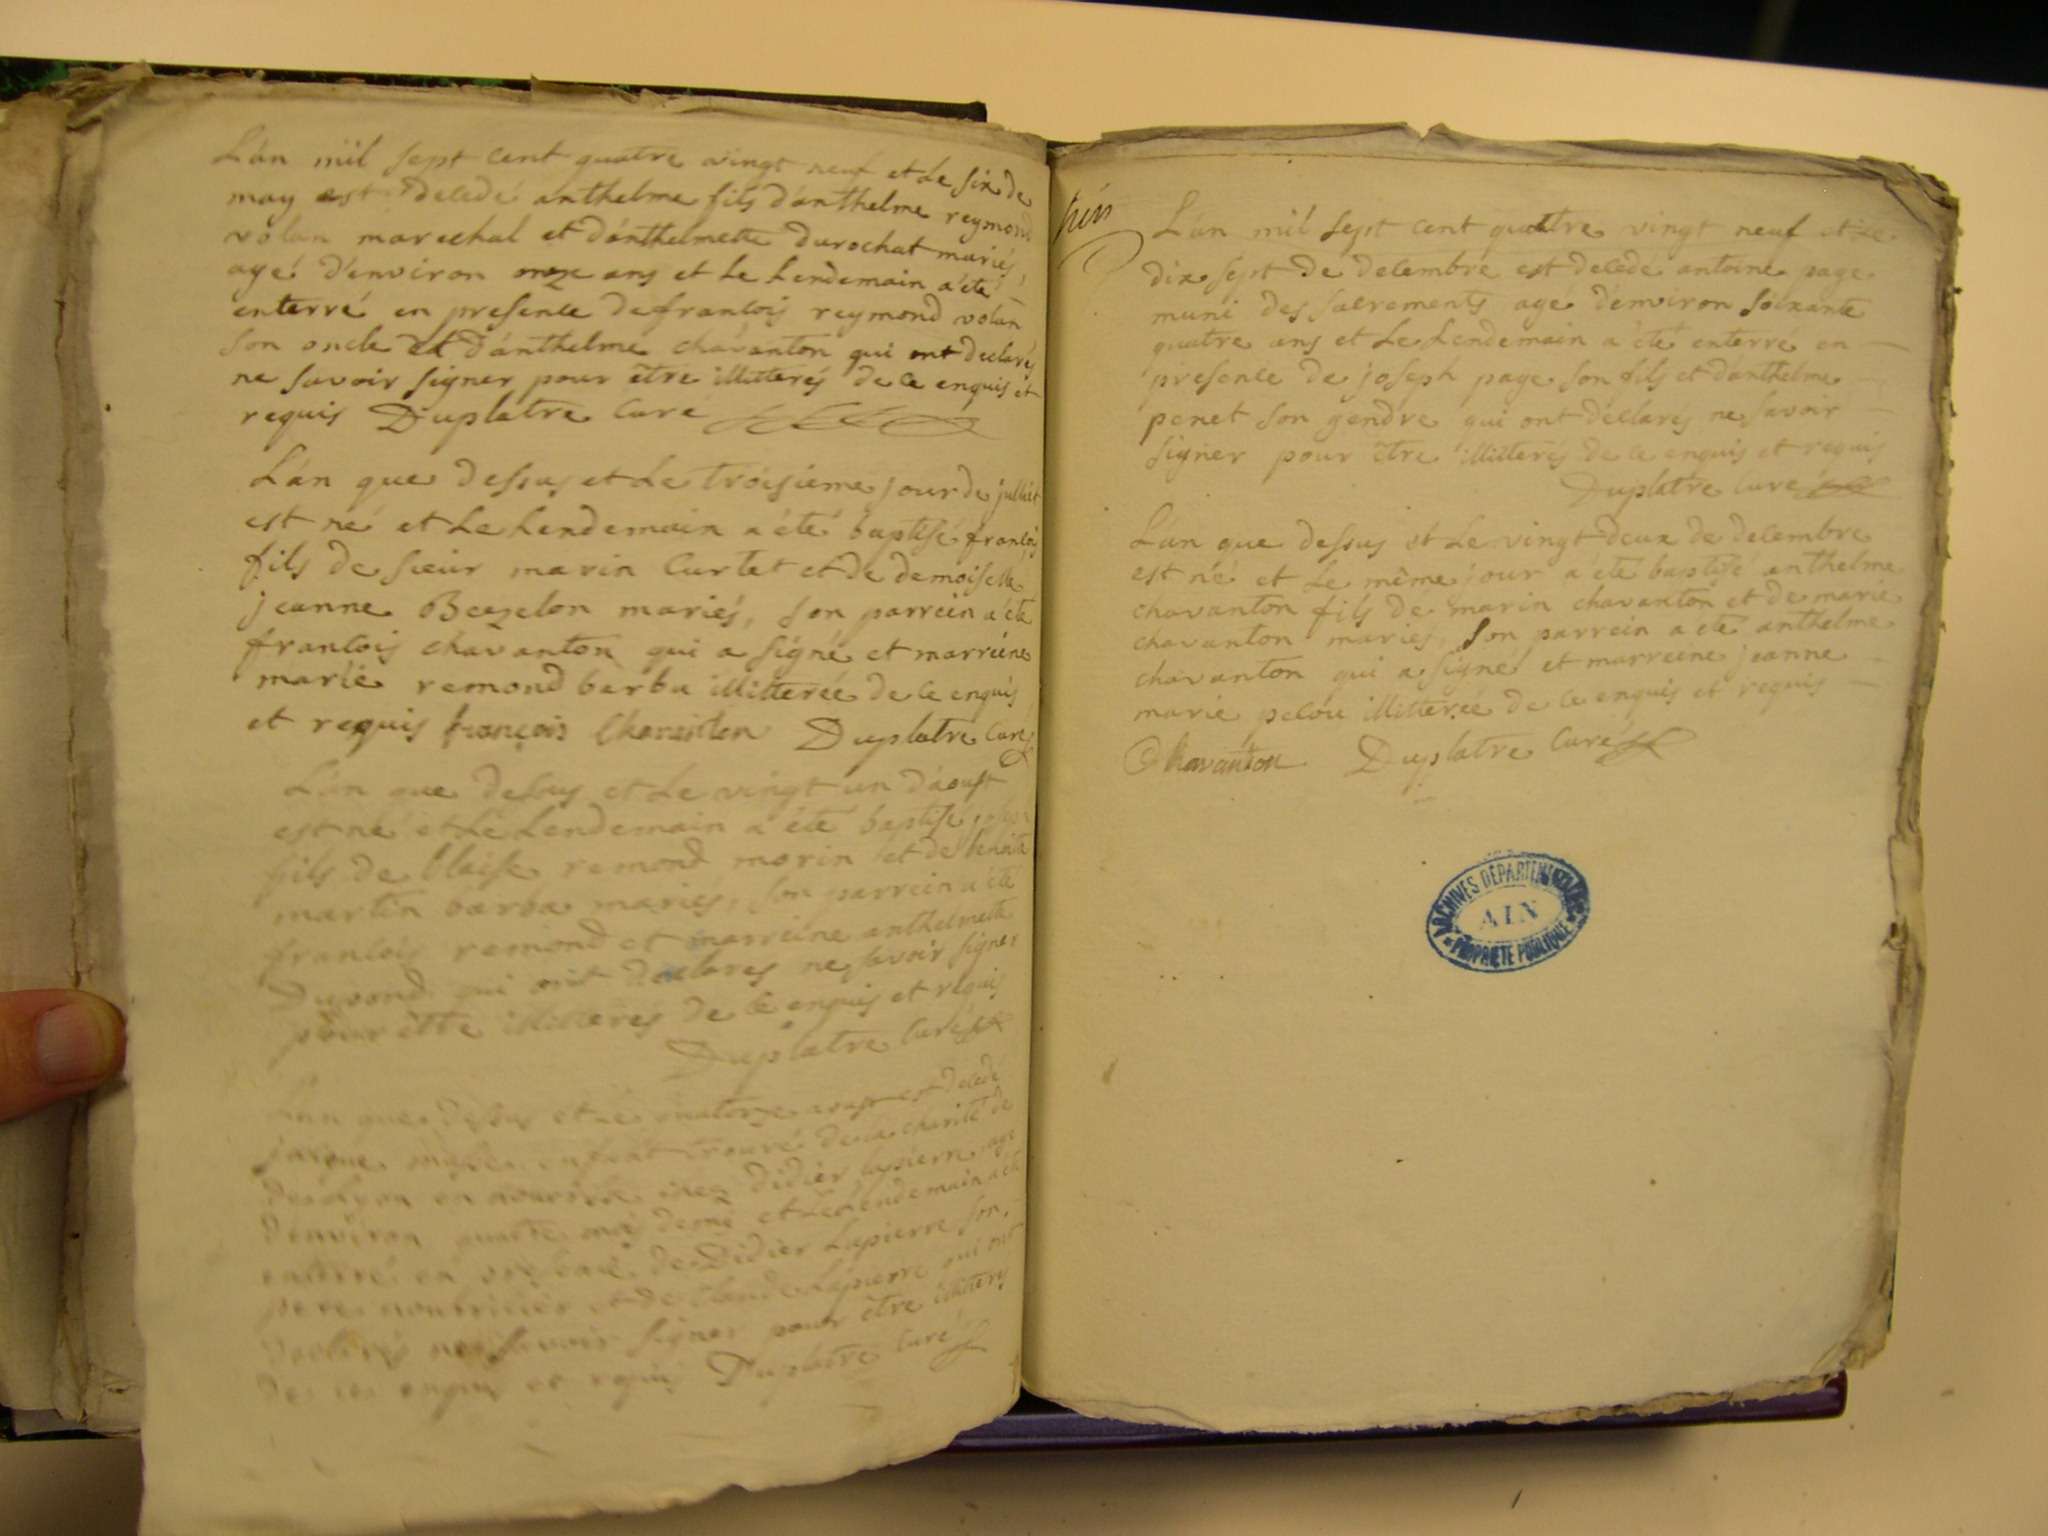 L'án mil sept cent quatre vingt neuf et Le six de
may est decedé anthelme fils d'ánthelme reymond
volan marechal et d'ánthelmette durochat mariés,
agé d'environ onze ans et Le Lendemain a été
enterré en presence de francois reymond volan
son oncle et d'ánthelme chavanton qui ont declarés
ne savoir signer pour être illitterés de ce enquis et
requis Duplatre Curé
L'án que dessus et Le troisieme jour de julliet
est né et Le Lendemain a été baptisé francois
fils de sieur marin Curtet et de demoiselle
jeanne mariés, son parrein a été
francois chavanton qui a signé et marreine
marie remond barba illitterée de ce enquis
et requis françois Chavanton Duplatre Curé
L'án que dessus et Le vingt un d'aoust
est né et Le Lendemain a été baptisé joseph
fils de blaise remond morin et de benoite
martin barba mariés, son parrein a été
francois remond et marreine anthelmette
qui ont declarés ne savoir signer
pour être illitterés de ce enquis et requis
Duplatre Curé
L'an que dessus et Le quatorze aoust est decedé
enfant trouvé de la charité de
de Lyon en nourrice chez didier lapierre agé
d'environ quatre mois demi et Le Lendemain a été
enterré en presence de Didier Lapierre son
pere nourricier et de Claude Lapierre qui ont
declarés ne savoir signer pour être illitterés
de ce enquis et requis Duplatre Curé
L'án mil sept cent quatre vingt neuf et Le
dix sept de decembre est decedé antoine page
muni des sacrements agé d'environ soixante
quatre ans et Le Lendemain a été enterré en
presence de joseph page son fils et d'anthelme
penet son gendre qui ont déclarés ne savoir
signer pour être illitterés de ce enquis et requis
Duplatre Curé
L'án que dessus et Le vingt deux de decembre
est né et Le même jour a été baptisé anthelme
chavanton fils de marin chavanton et de marie
chavanton mariés, son parrein a été anthelme
chavanton qui a signé et marreine jeanne
marie pelou illitterée de ce enquis et requis
Chavanton Duplatre Curé
ARCHIVES DÉPARTEMENTALES
AIN
PROPRIÉTÉ PUBLIQUE